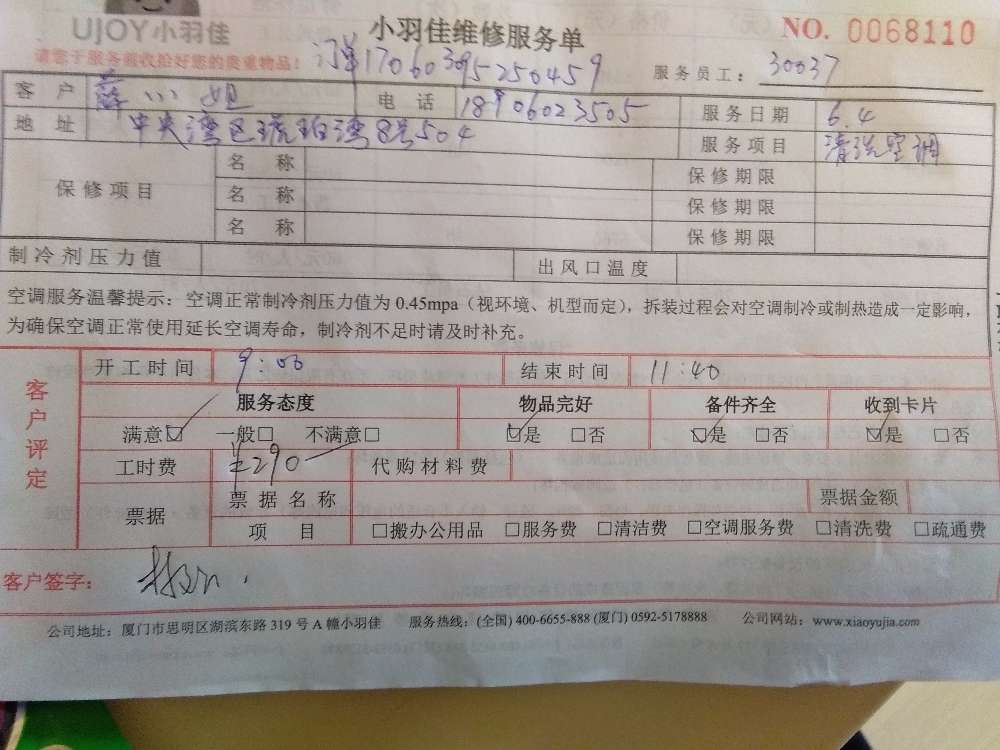 UJOY小羽佳
小羽佳维修服务单
NO. 0068110
请您于服务前收拾好您的贵重物品!
订单17060395250459
服务员工: 30037
客户 薛小姐 电话 18906023505 服务日期 6.4
地址 中央湾区琥珀湾8号504 服务项目 清洗空调
保修项目
名称 保修期限
名称 保修期限
名称 保修期限
制冷剂压力值 出风口温度
空调服务温馨提示: 空调正常制冷剂压力值为 0.45mpa (视环境、机型而定), 拆装过程会对空调制冷或制热造成一定影响,
为确保空调正常使用延长空调寿命, 制冷剂不足时请及时补充。
客户评定
开工时间 9:00 结束时间 11:40
服务态度 物品完好 备件齐全 收到卡片
满意☑ 一般□ 不满意□ ☑是 □否 ☑是 □否 ☑是 □否
工时费 ¥290 代购材料费
票据 票据名称 票据金额
项目 □搬办公用品 □服务费 □清洁费 □空调服务费 □清洗费 □疏通费
客户签字:
公司地址: 厦门市思明区湖滨东路 319 号 A 幢小羽佳 服务热线: (全国) 400-6655-888 (厦门) 0592-5178888 公司网站: www.xiaoyujia.com